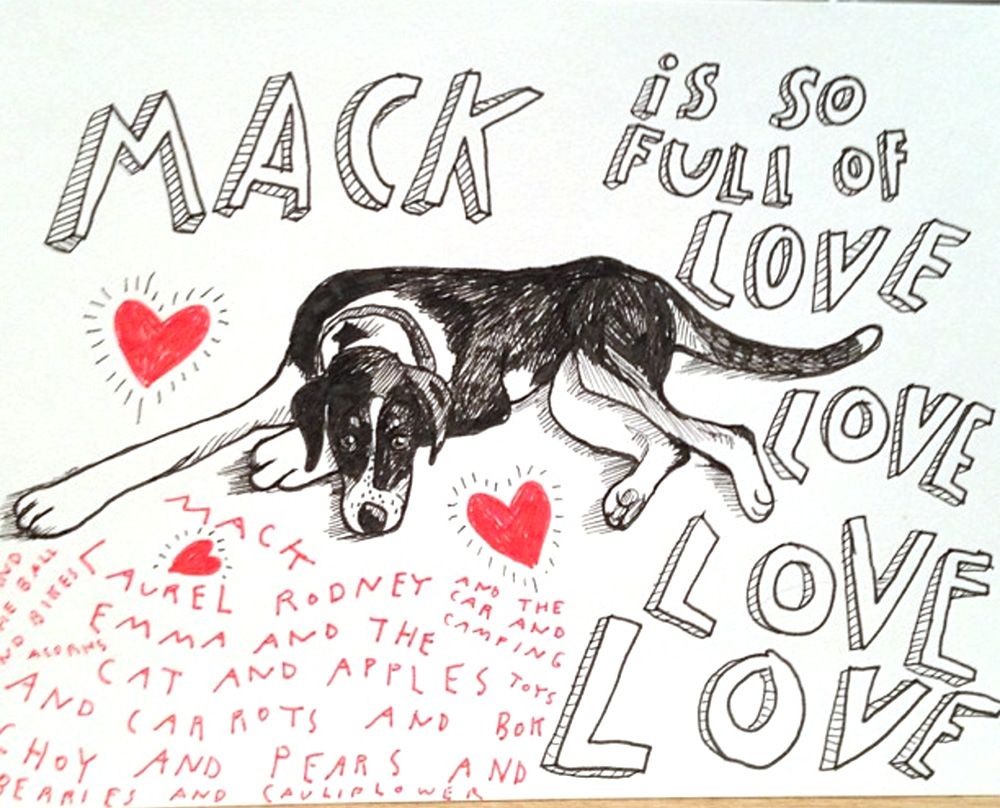 MACK
iS SO
FULL OF
LOVE
LOVE
LOVE
LOVE
MACK
LAUREL RODNEY
EMMA AND THE
CAT AND APPLES
AND CARROTS AND BOK
CHOY AND PEARS AND
BERRIES AND CAULIFLOWER
AND THE
CAR AND
CAMPING
TOYS
BALL
BIKES
ACORNS